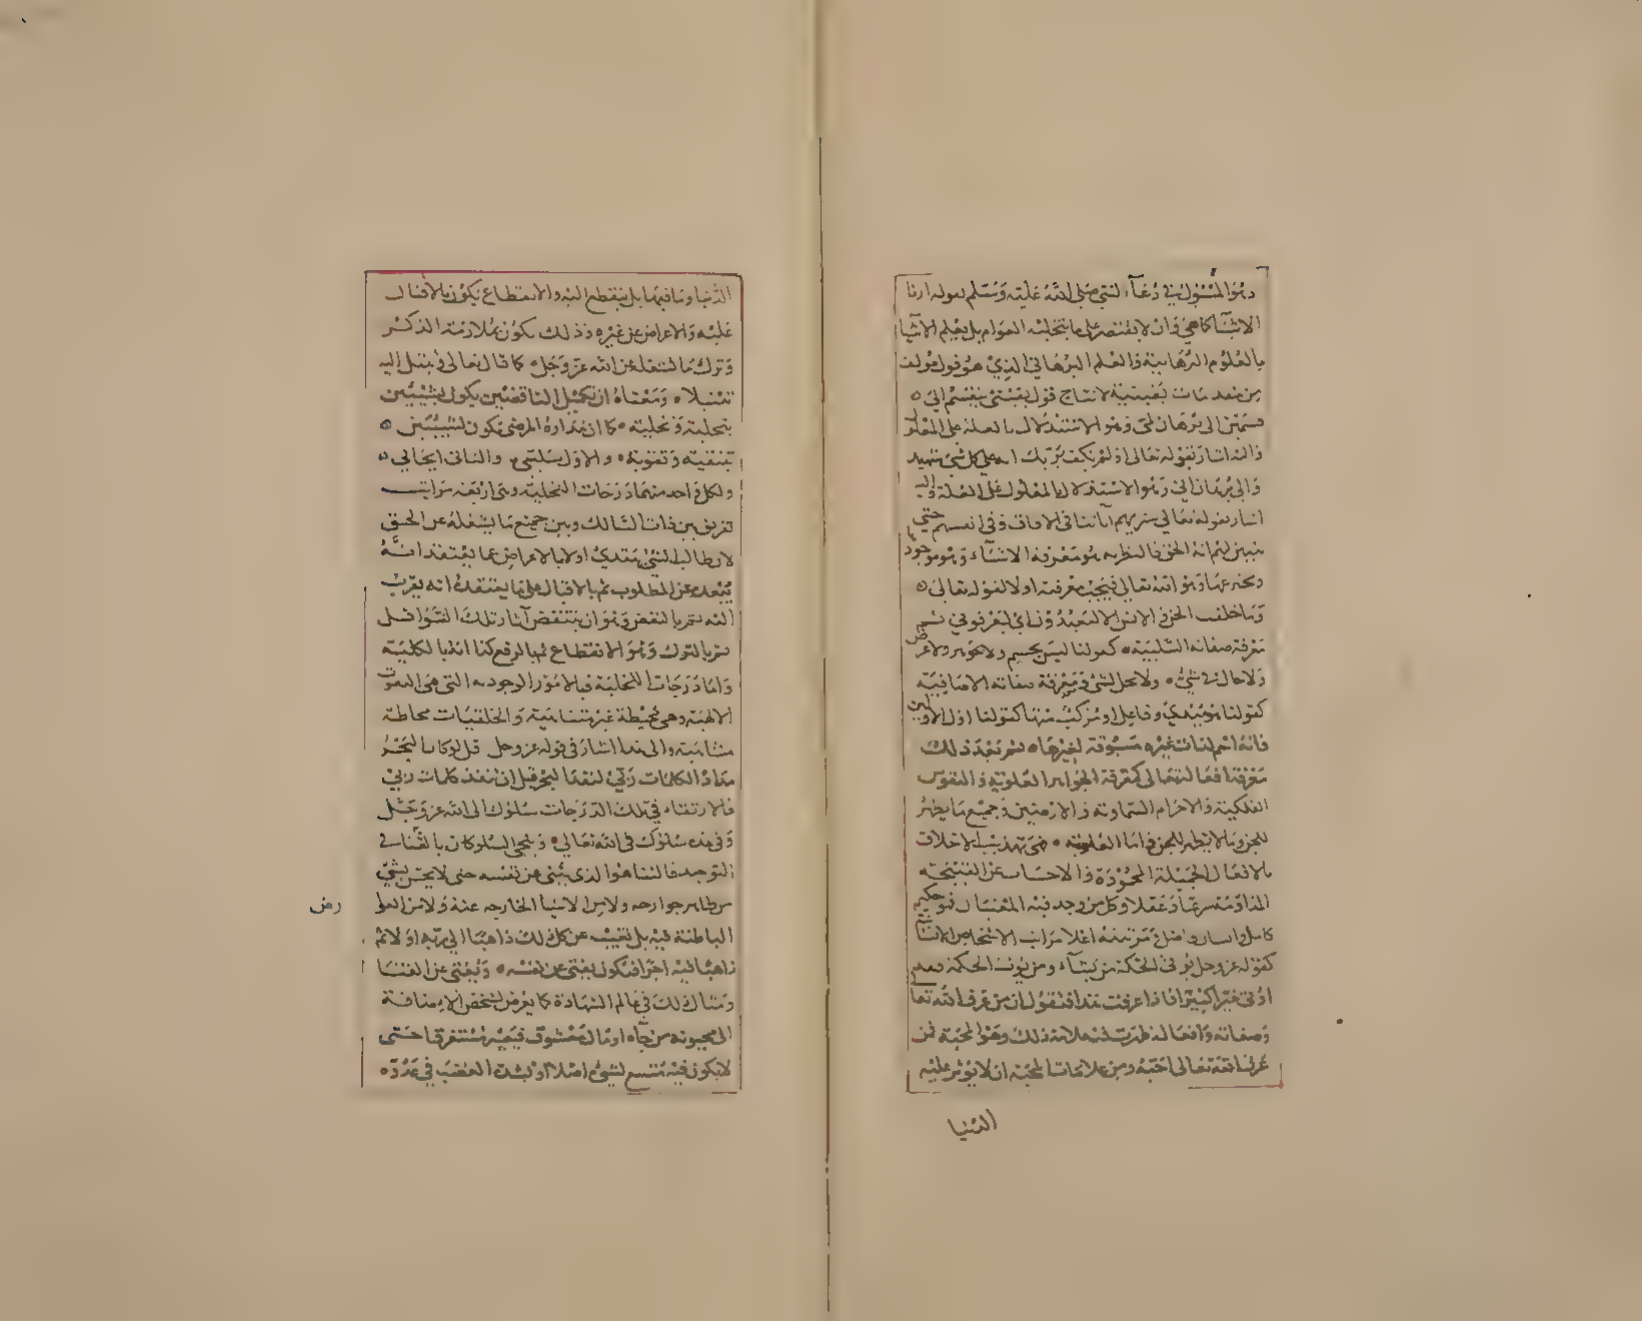 وهو المسئول في دعاء النبي صلى الله عليه وسلم بقوله ارنا
الاشيا كما هي وان لا يقتصر على ما يتخليه العوام بل يعلم الاشيا
بالعلوم البرهانية والعلم البرهاني الذي هو قول مولف
من مقدمات يقينية لانتاج قول يقيني ينقسم الى
قسمين الى برهان لمي وهو الاستدلال بالعلة على المعلول
واليه اشار بقوله تعالى اولم يكف بربك انه على كل شئ شهيد
والى برهان اني وهو الاستدلال بالمعلول على العلة واليه
اشار بقوله تعالى سنريهم آياتنا في الافاق وفي انفسهم حتى
يتبين لهم انه الحق فالنظرية هو معرفة الاشياء وهو موجود
وهو الله تعالى فيجب معرفته اولا لقوله تعالى
وما خلقت الجن والانس الا ليعبدون اي ليعرفوني ثم
معرفة صفاته السلبية كقولنا ليس بجسم ولا جوهر ولا عرض
ولا حال في شئ ولا محل لشئ ومعرفة صفاته الاضافية
كقولنا مبدئ وفاعل او مركب منها كقولنا اول الاولين
فانه اسم لذات غيره مسبوقة لغيرها ثم بعد ذلك
معرفة افعاله تعالى كمعرفة الجواهر العلوية والنفوس
الفلكية والاجرام السماوية والارضيين وجميع ما يظهر
للجن وما لا يظهر للجن واما العلمية فهي تهذيب الاخلاق
بالافعال الجميلة المحمودة والاحتساب عن القبيحة
المذمومة شرعا وعقلا وكل من وجد فيه المعنيان فهو حكيم
كامل وانسان فاضل مرتبته اعلا مراتب الاشخاص الانسانية
كقوله عز وجل يؤتي الحكمة من يشاء ومن يؤت الحكمة فقد
اوتي خيرا كثيرا فاذا عرفت هذا فنقول ان من عرف الله تعالى
وصفاته وافعاله ظهرت لعلامة ذلك وهو المحبة فمن
عرف الله تعالى احبه ومن علامات المحبة ان لا يوثر عليه
الدنيا
الدنيا وما فيها بل ينقطع اليه والانقطاع يكون بالاقبال
عليه والاعراض عن غيره وذلك يكون بملازمة الذكر
وترك ما يشغله عن الله عز وجل كما قال تعالى وتبتل اليه
تبتيلا ومعناه ان تكميل الناقصين يكون بشيئين
بتحلية وتخلية كما ان مداراة المرضى يكون لشيئين
بتنقية وتقوية والاول سلبي والثاني ايجابي
ولكل واحد منهما درجات التخلية وهي اربعة مراتب
تفريق بين ذات السالك وبين جميع ما يشغله عن الحق
لان طالب الشئ يبتدئ اولا بالاعراض عما يعتقد انه
يبعده عن المطلوب ثم بالاقبال على ما يعتقده انه يقرب
اليه ثم بالنفض وهو ان ينتفض آثار تلك الشواغل
ثم بالترك وهو الانقطاع ثم بالرفع كذا انه بالكلية
واما درجات التحلية فبالامور الوجودية التي هي النعوت
الالهية وهي محيطة غير متناهية والخلقيات محاطة
متناهية والى هذا اشار في قوله عز وجل قل لو كان البحر
مدادا لكلمات ربي لنفد البحر قبل ان تنفد كلمات ربي
فالارتقاء في تلك الدرجات سلوك الى الله عز وجل
وفي هذه سلوك في الله تعالى وينتهي السلوكان بالفنا في
التوحيد فالفنا هو الذي يفنى عن نفسه حتى لا يحس بشئ
من ظاهر جوارحه ولا من الاشيا الخارجة عنه ولا من العوارض
الباطنة فيه بل يغيب عن كل ذلك ذاهبا الى ربه اولا ثم
ذاهبا فيه اخرا فيكون يفنى عن نفسه ويفنى عن الفنا
ومثال ذلك في عالم الشهادة كما يعرض لشخص بالاضافة
الى محبوبه من جاه او مال معشوق فيصير مستغرقا حتى
لا يكون فيه متسع لشئ اصلا او لشدة الغضب في عدوه